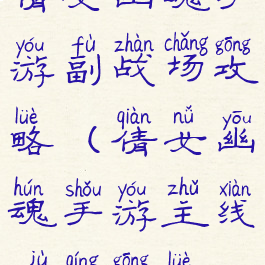 yóu fù zhàn chǎng gōng
游副战场攻
lüè qiàn nǚ yōu
略(倩女幽
hún shǒu yóu zhǔ xiàn
魂手游主线
jù qíng gōng lüè